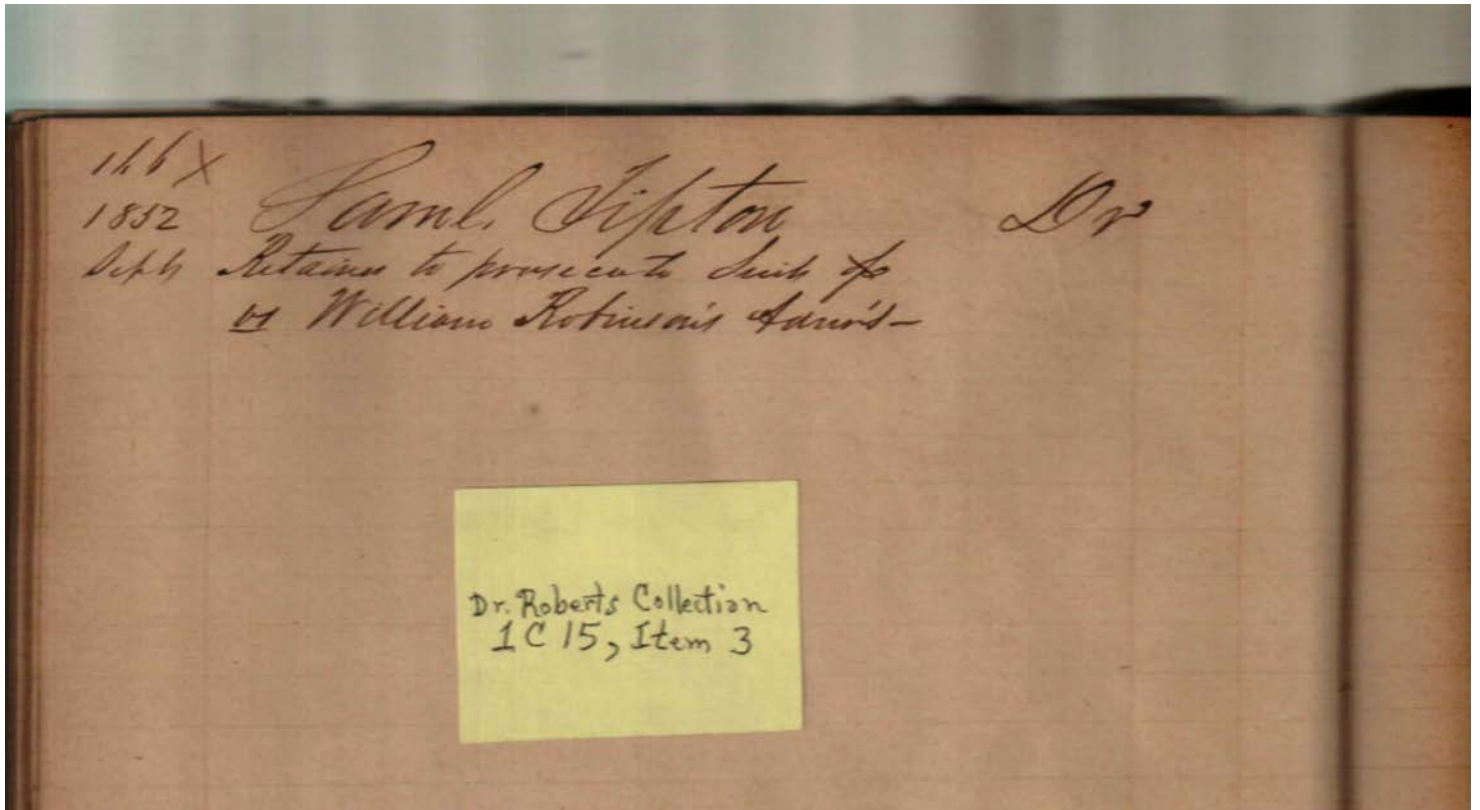 166 X
1852 Saml. Tipton Dr
Sept Retainer to prosecute Suit
vs William Robinson's Admr's –
Dr. Roberts Collection
1C 15, Item 3